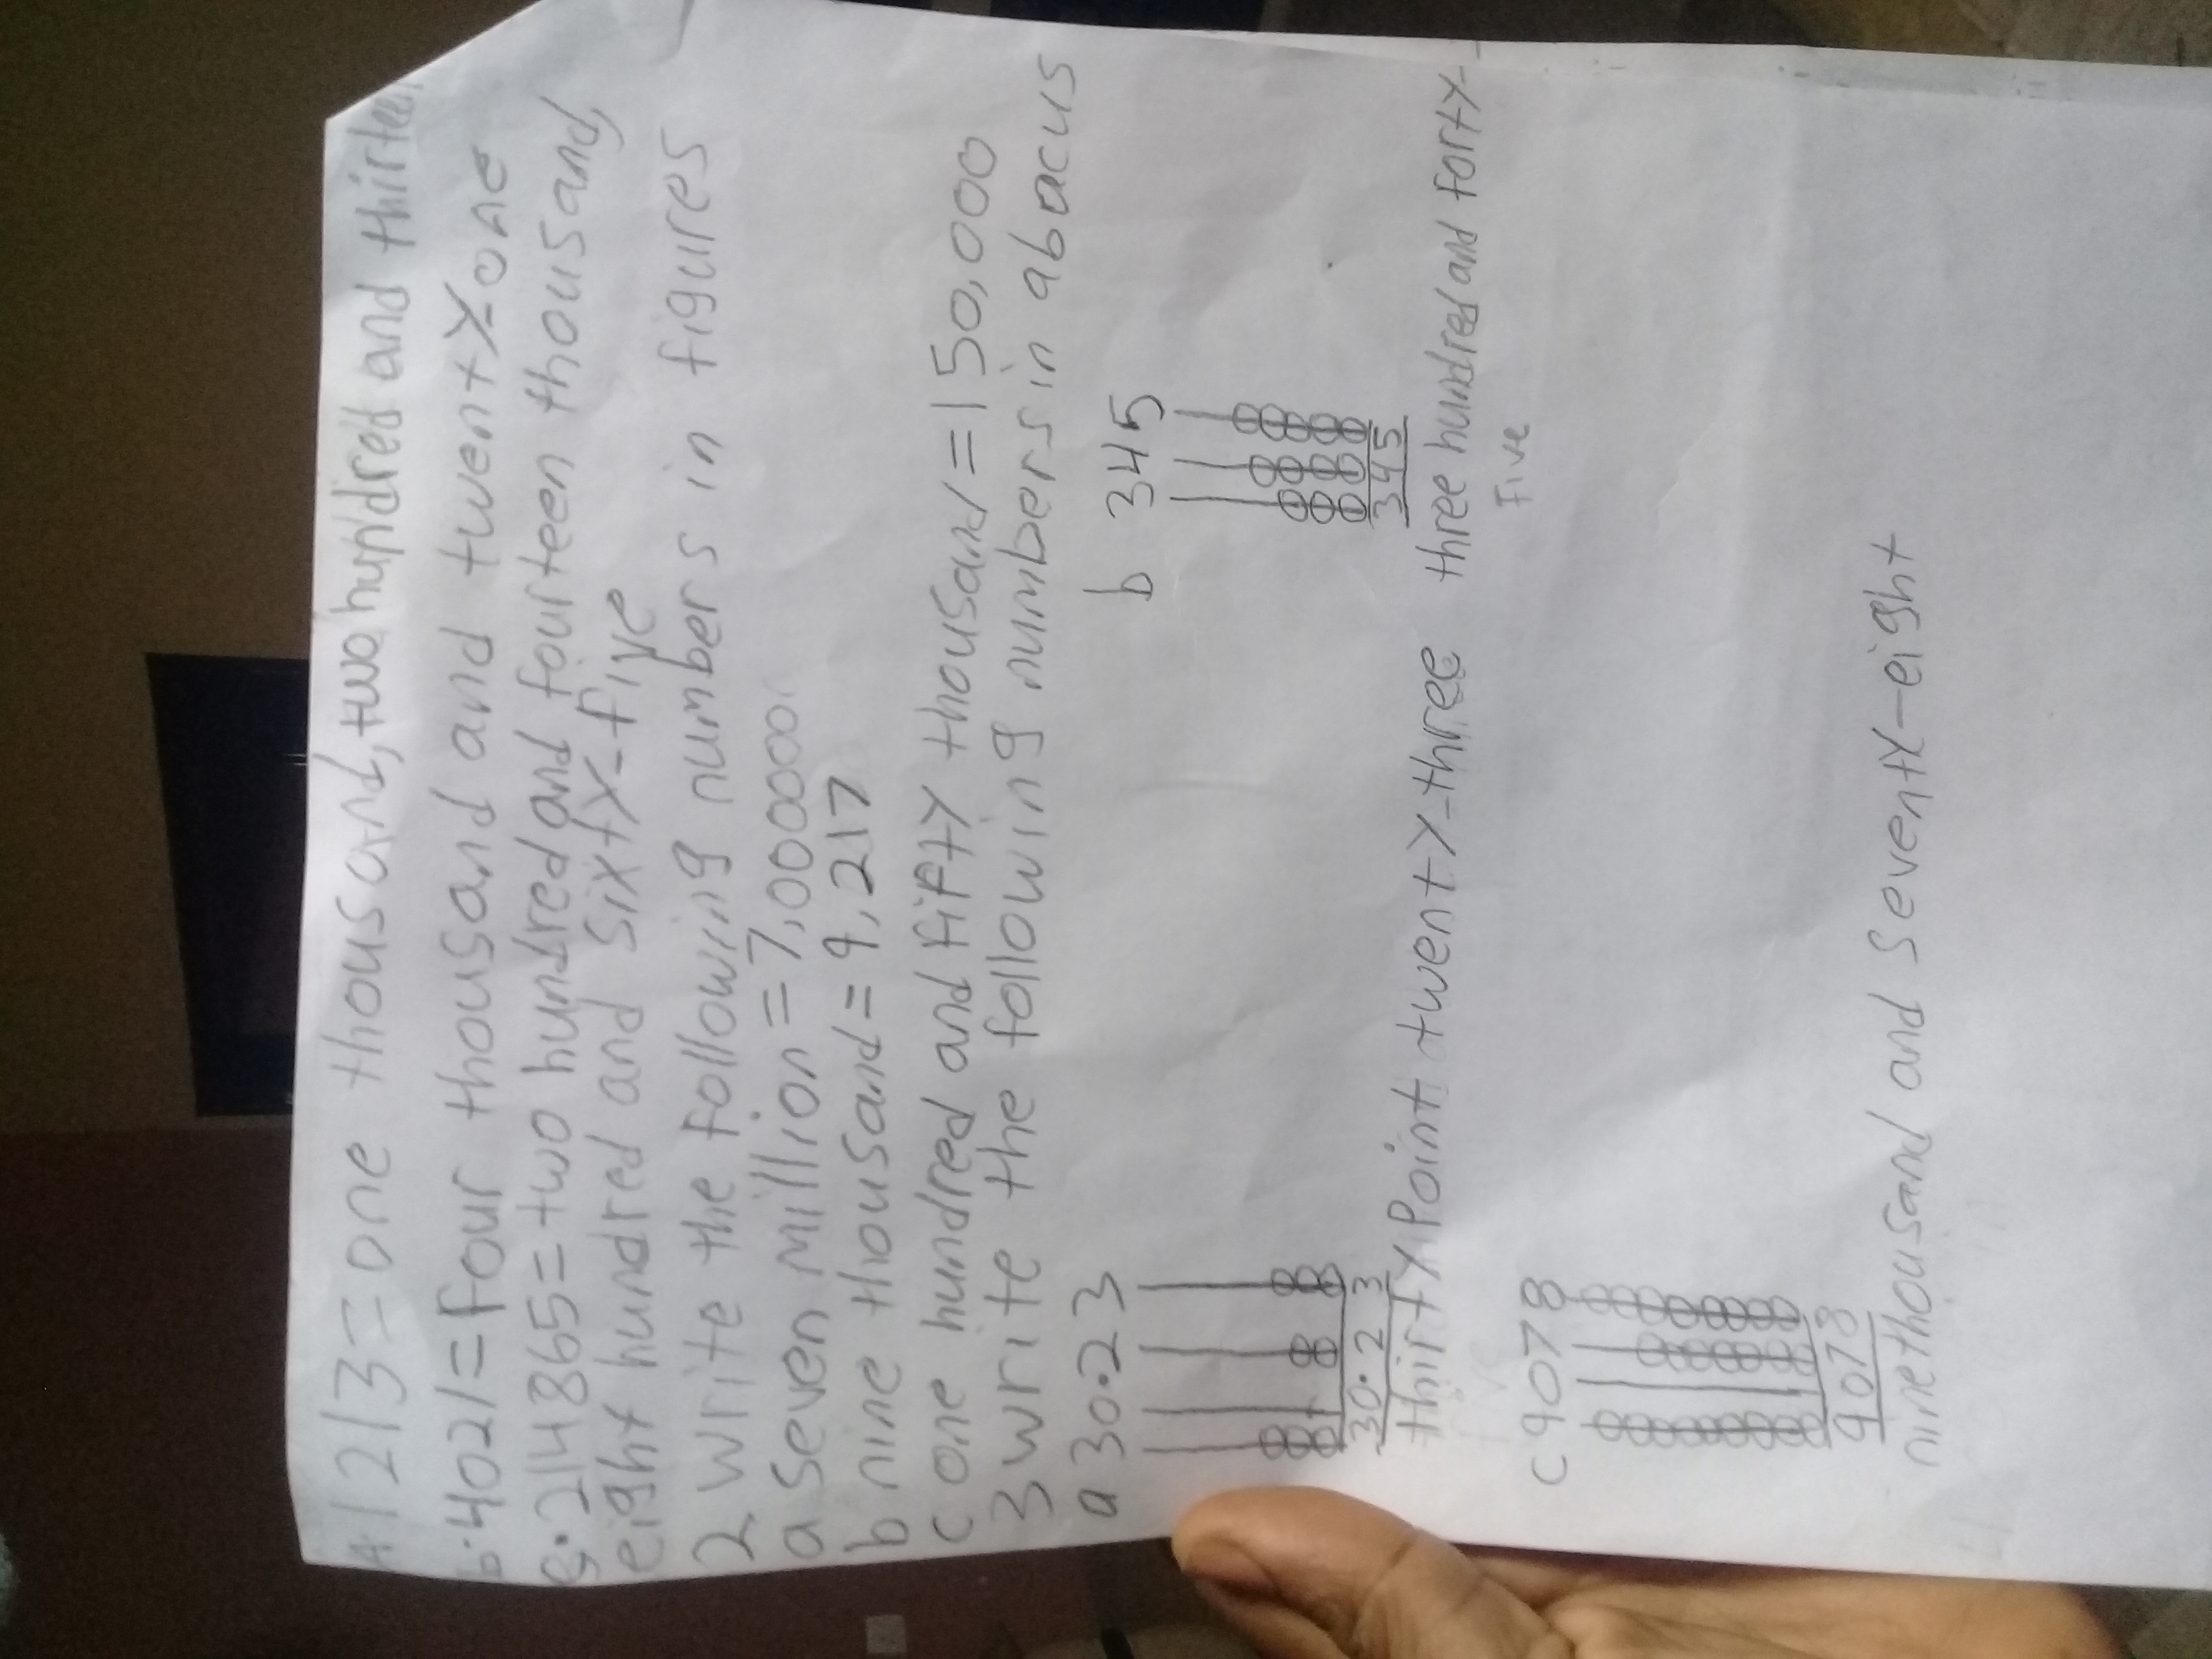 A 1213 = one thousand, two hundred and thirteen
b. 4021 = four thousand and twenty-one
c. 214865 = two hundred and fourteen thousand,
eight hundred and sixty-five
2 write the following numbers in figures
a seven million = 7,000000
b nine thousand = 9,217
c one hundred and fifty thousand = 150,000
3 write the following numbers in abacus
a 30.23 b 345
30.23 345
thirty Point twenty-three three hundred and forty-
Five
c 9078
9078
nine thousand and seventy-eight